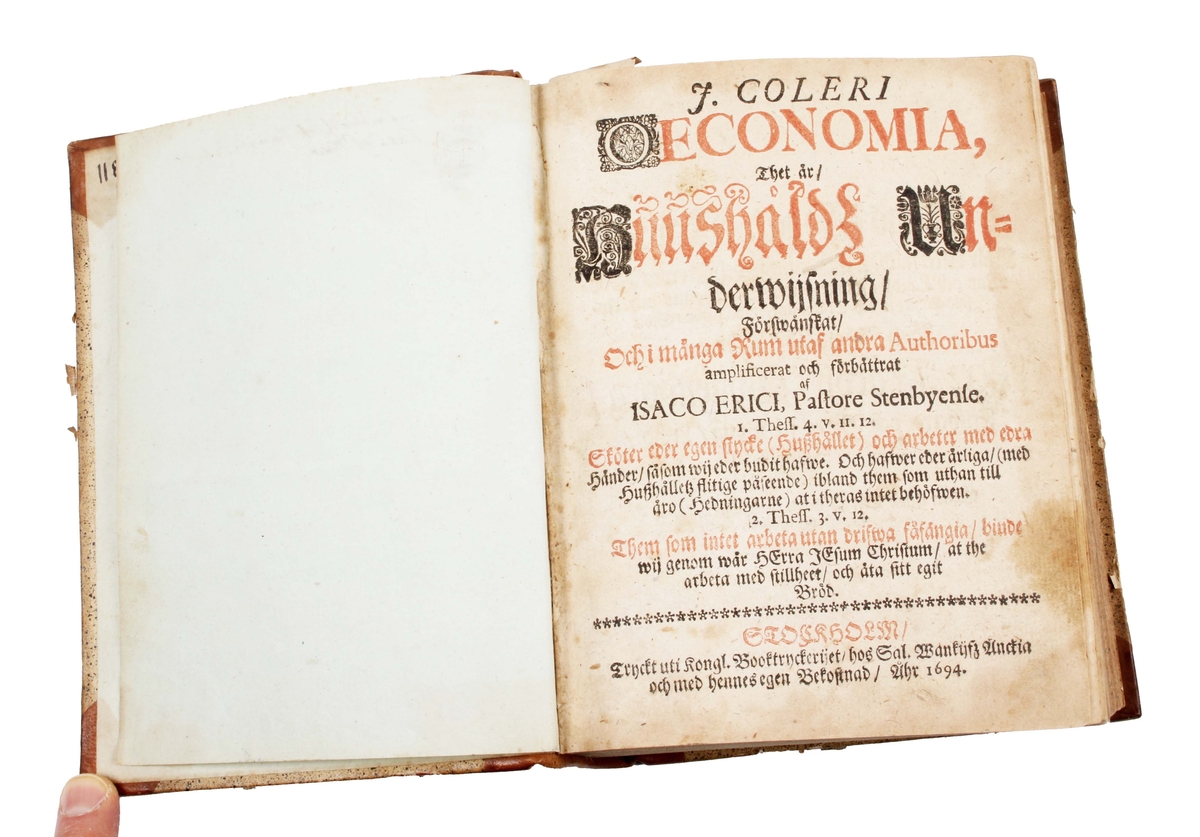 118
J. COLERI
OECONOMIA,
Thet är/
Hüüshåldz Un-
derwijsning/
Förswänskat/
Och i många Rum utaf andra Authoribus
amplificerat och förbättrat
af
ISACO ERICI, Pastore Stenbyense.
1. Thess. 4. v. 11. 12.
Sköter eder egen stycke (Hußhållet) och arbeter med edra
Händer/ såsom wij eder budit hafwe. Och hafwer eder ärliga/ (med
Hußhålletz flitige påseende) ibland them som uthan till
äro (Hedningarne) at i theras intet behöfwen.
2. Thess. 3. v. 12.
Them som intet arbeta utan drifwa fåfängia/ biude
wij genom wår HErra JEsum Christum/ at the
arbeta med stillheet/ och äta sitt egit
Bröd.
STOCKHOLM/
Tryckt uti Kongl. Booktryckerijet/ hos Sal. Wankijfz Änckia
och med hennes egen Bekostnad/ Åhr 1694.